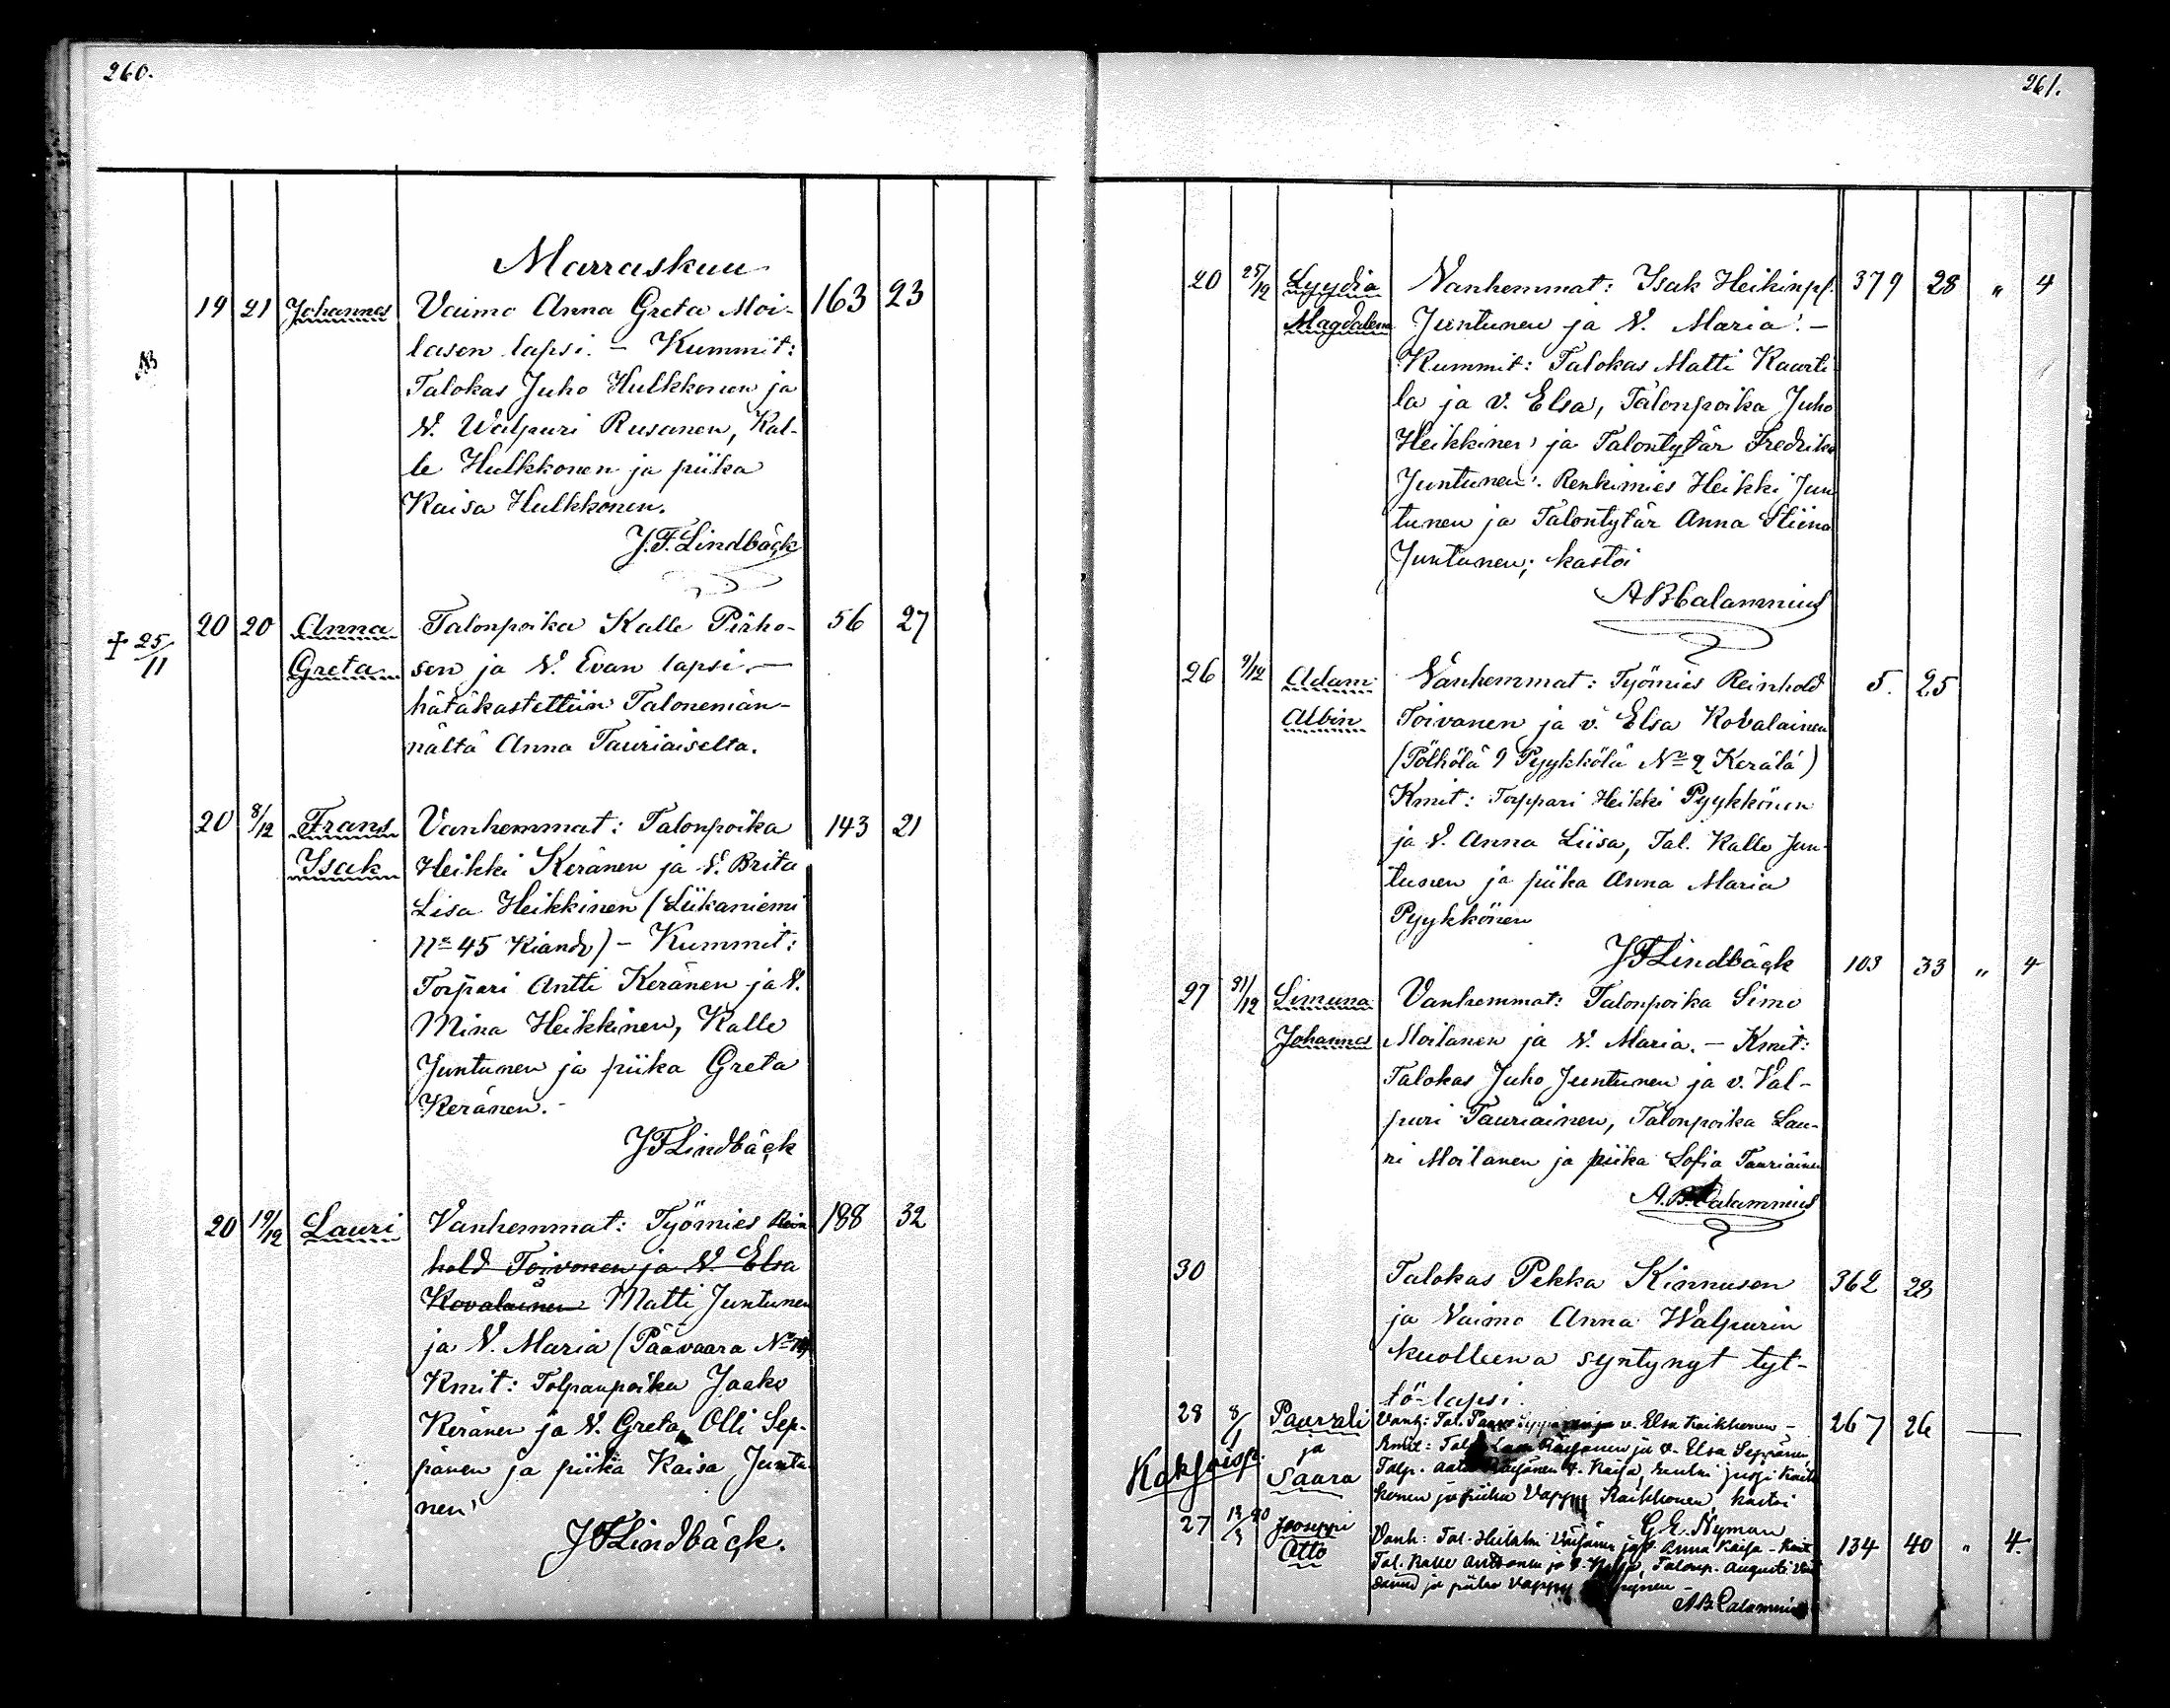 260.
Marraskuu
19 21 Johannes Vaimo Anna Greta Moi- 163 23
NB lasen lapsi. – Kummit:
Talokas Juho Hulkkonen ja
V. Walpuri Rusanen, Kal-
le Hulkkonen ja piika
Kaisa Hulkkonen.
J.F. Lindbäck
20 20 Anna Talonpoika Kalle Pirho- 56 27
† 25/11 Greta sen ja V. Evan lapsi. –
hätäkastettiin Talonemän-
nältä Anna Tauriaiselta.
20 8/12 Frans Vanhemmat: Talonpoika 143 21
Isak Heikki Keränen ja V. Brita
Lisa Heikkinen (Liikaniemi
No 45 Kiando) – Kummit:
Torpari Antti Keränen ja V.
Mina Heikkinen, Kalle
Juntunen ja piika Greta
Keränen. –
JFLindbäck
20 19/12 Lauri Vanhemmat: Työmies Rein 188 32
hold Toivonen ja V. Elsa
Kovalainen Matti Juntunen
ja V. Maria (Päävaara No
Kmit: Tolpanpoika Jaako
Keränen ja V. Greta, Olli Sep-
pänen ja piika Kaisa Juntu
nen
JFLindbäck.
261.
20 25/12 Lyydia Vanhemmat: Isak Heikinp. 379 28 " 4
Magdalena Juntunen ja V. Maria. –
Kummit: Talokas Matti Kaurti
la ja v. Elsa, Talonpoika Juho
Heikkinen ja Talontytär Fredrika
Juntunen. Renkimies Heikki Jun
tunen ja Talontytär Anna Stiina
Juntunen; kastoi
ABCalamnius
26 9/12 Adam Vanhemmat: Työmies Reinhold 5. 25
Albin Toivanen ja v. Elsa Kovalainen
(Pölhölä 9 Pyykkölä No 2 Kerälä)
Kmit: Torppari Heikki Pyykkönen
ja V. Anna Liisa, Tal. Kalle Jun-
tunen ja piika Anna Maria
Pyykkönen
JFLindbäck
27 31/12 Simuna Vanhemmat: Talonpoika Simo 103 33 " 4
Johannes Moilanen ja V. Maria. – Kmit:
Talokas Juho Juntunen ja v. Val-
puri Tauriainen, Talonpoika Lau-
ri Moilanen ja piika Sofia Tauriainen
A.B.Calamnius
30 Talokas Pekka Kinnusen 362 28
ja Vaimo Anna Walpurin
kuolleena syntynyt tyt-
tö-lapsi.
28 8/1 Paavali Vanh: Tal. v. Elsa Keikkonen – 267 26 —
ja Kmit: Talp. ja v. Elsa Seppänen,
Kaksoisp. Saara Talp. V. Kaisa,
ja piika Vappu Kaikkonen, kastoi
G.E. Nyman
27 Jooseppi Vanh: Tal. Anna Kaisa – Kmit 134 40 " 4.
Otto Tal. Kalle ja V. Talonp. Augusti
ja piika Vappu
AB.Calamnius